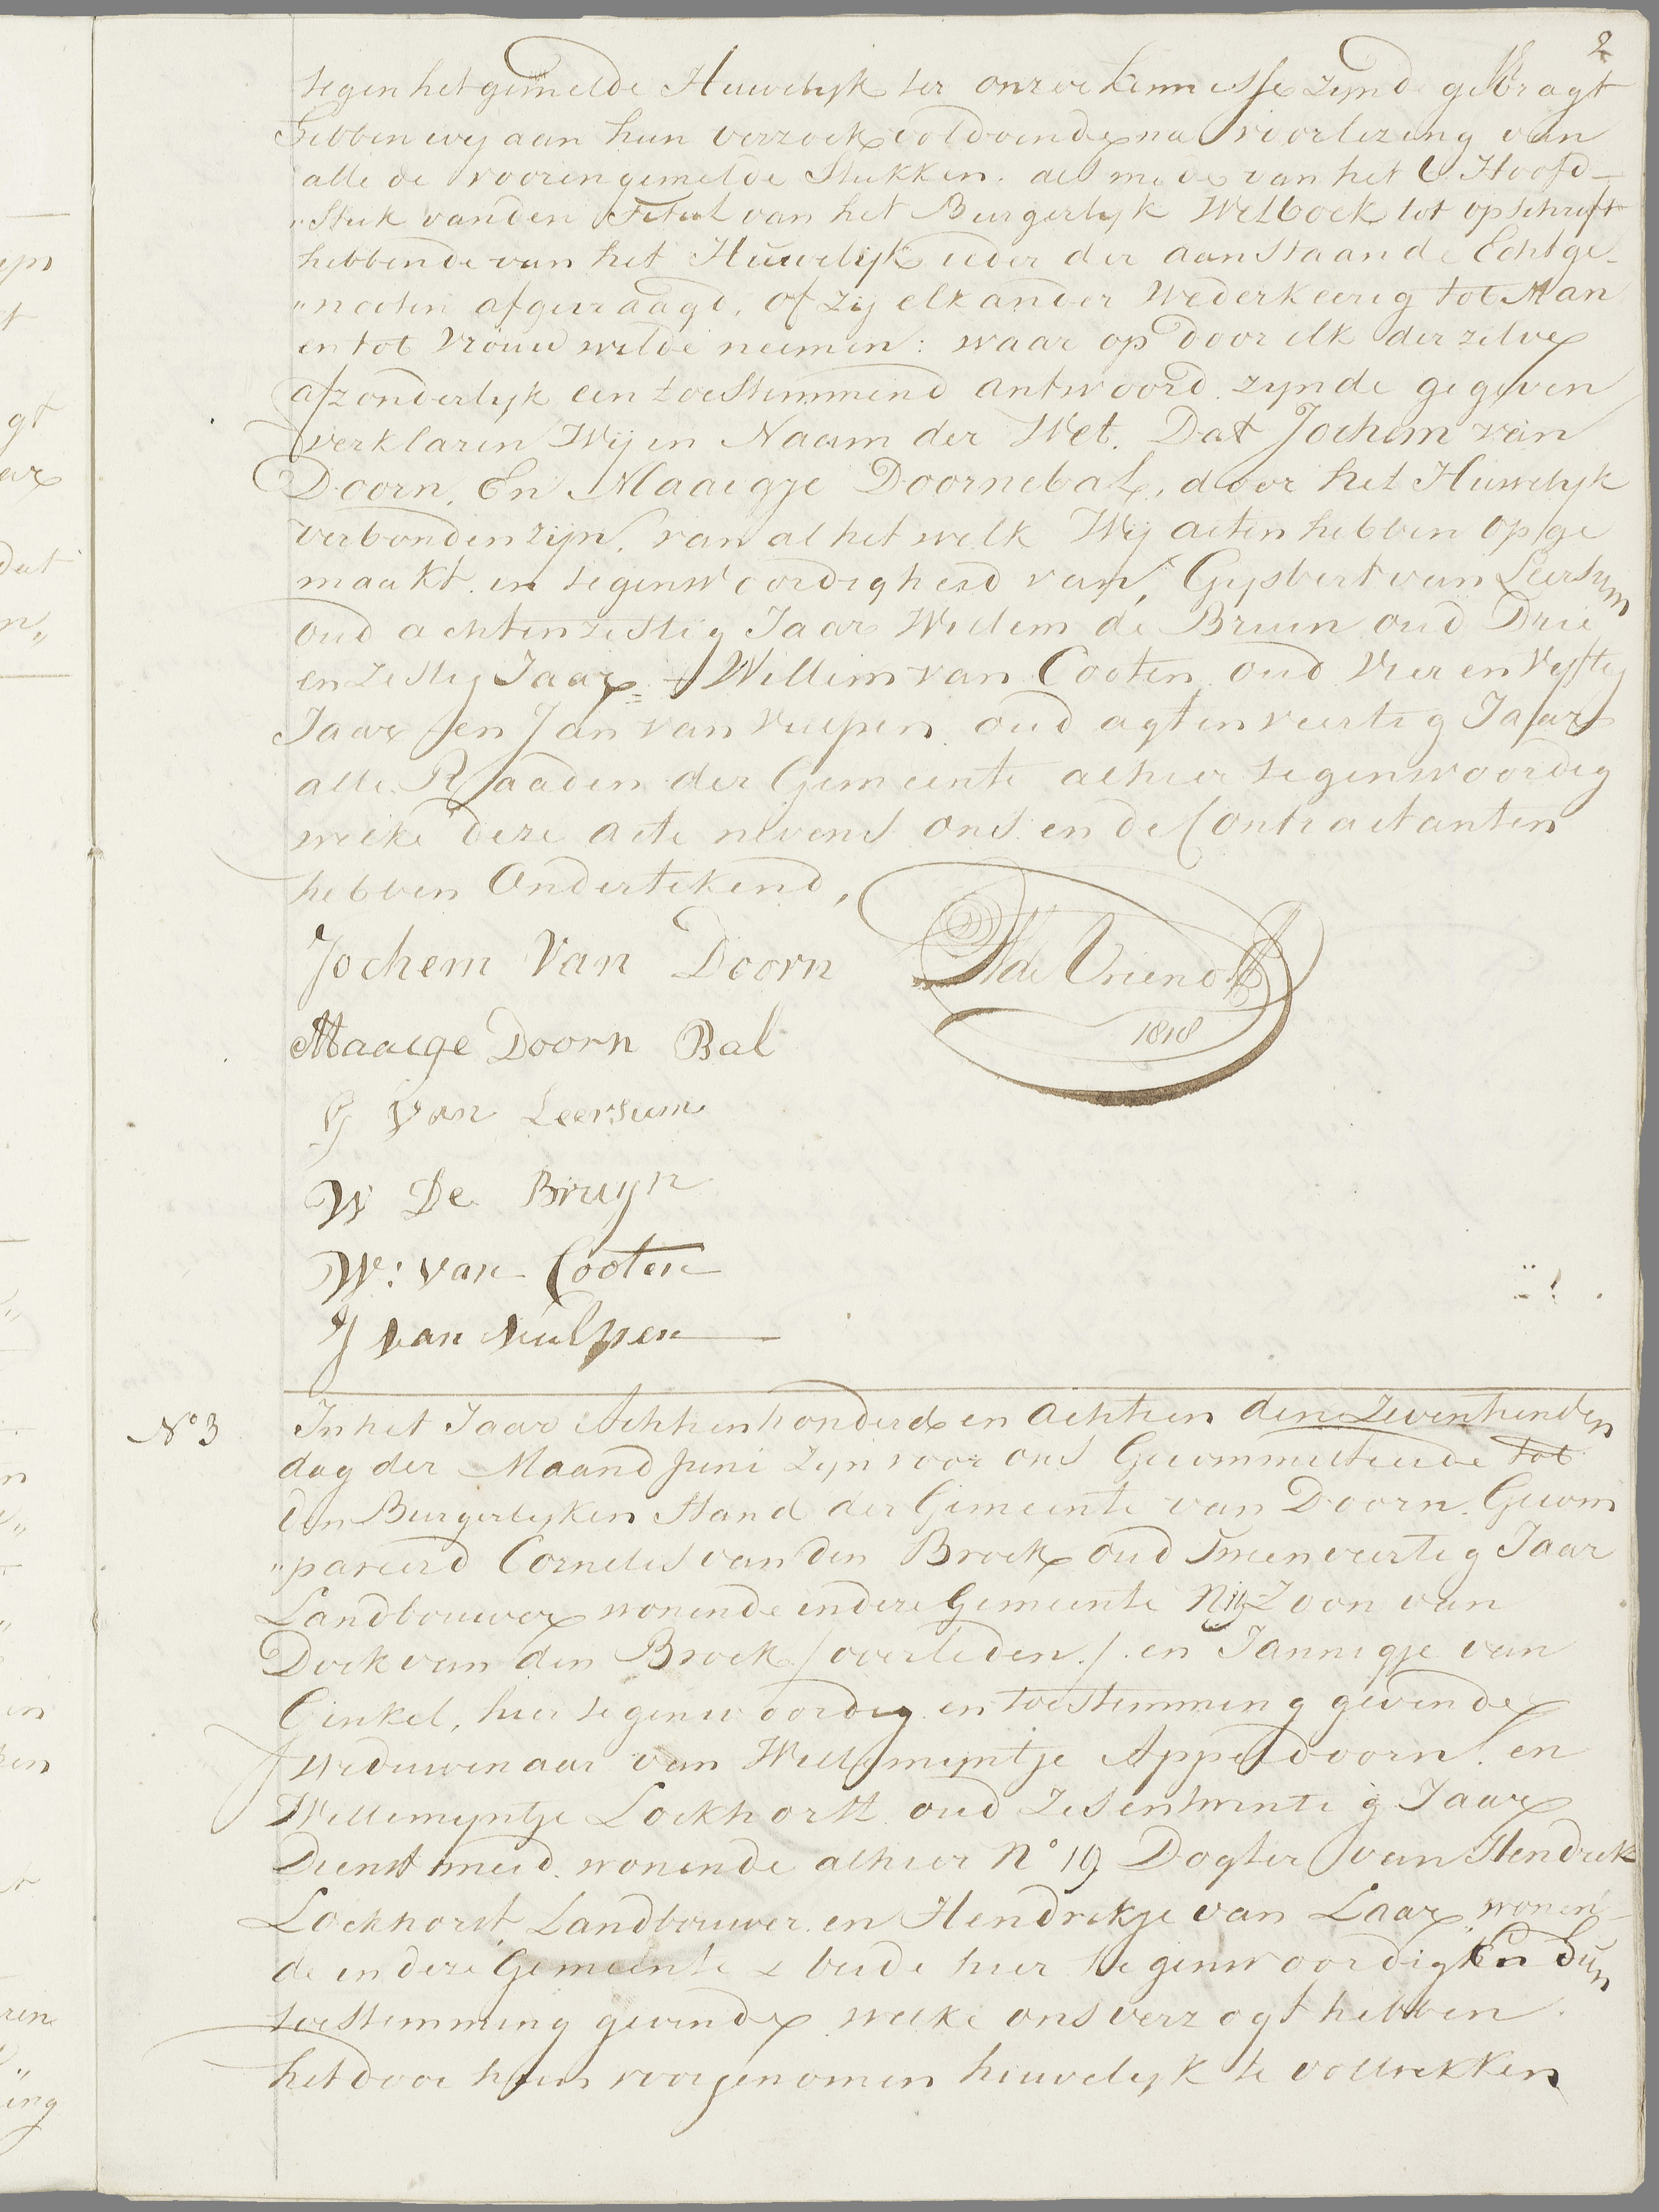 2
tegen het gemelde Huwelijk ter onzer kennisse zynd gebragt
Hebben wy aan hun verzoek voldoende na voorlezing van
alle de voorengemelde Stukken. als mede van het 6 Hoofd-
"Stuk vanden Titul van het Burgerlyk Wetboek tot opschrift
hebbende van het Huwelijk ieder der aanstaande Echtge-
"nooten afgevraagd, of zij elkander wederkeerig tot Man
en tot Vrouw wilde neemen: waar op door elk der zelve
afzonderlyk een toestemmend antwoord zynde gegeven
verklaren Wij in Naam der Wet. Dat Jochem van
Doorn, En Maaigje Doornebal, door het Huwelyk
verbonden zijn, van al het welk Wij acten hebben opge
maakt in tegenwoordigheid van, Gysbert van Leersum
oud achtenzestig Jaar Willem de Bruin oud Drie
en zestig Jaar Willem van Cooten oud Vier en Vyftig
Jaar en Jan van Vulpen oud agtenveertig Jaar
alle Raaden der Gemeente alhier tegenwoordig
welke deze acte nevens ons en de Contractanten
hebben Ondertekend,
Jochem Van Doorn
de Vriend
1818
Maaige Doorn Bal
G Van Leersum
W De Bruyn
W: van Cooten
J van Vulpen
N° 3
In het Jaar Achttienhonderd en Achttien den Zeventienden
dag der Maand Juni zyn voor ons Gecommitteerde tot
den Burgerlyken Stand der Gemeente van Doorn. Gecom
"pareerd Cornelis van den Broek oud Tweenveertig Jaar
Landbouwer wonende in deze Gemeente Zoon van
Dirk van den Broek /overleden./. en Jannigje van
Ginkel, hier tegenwoordig en toestemming gevende
Weduwenaar van Willemyntje Appeldoorn. en
Willemyntje Lockhorst oud Zesentwintig Jaar
Dienstmeid wonende alhier N° 19 Dogter van Hendrik
Lockhorst Landbouwer en Hendrikje van Laar wonen-
de in deze Gemeente & beide hier tegenwoordig En Hun
toestemming gevende welke ons verzogt hebben
het door hun voorgenomen huwelyk te voltrekken